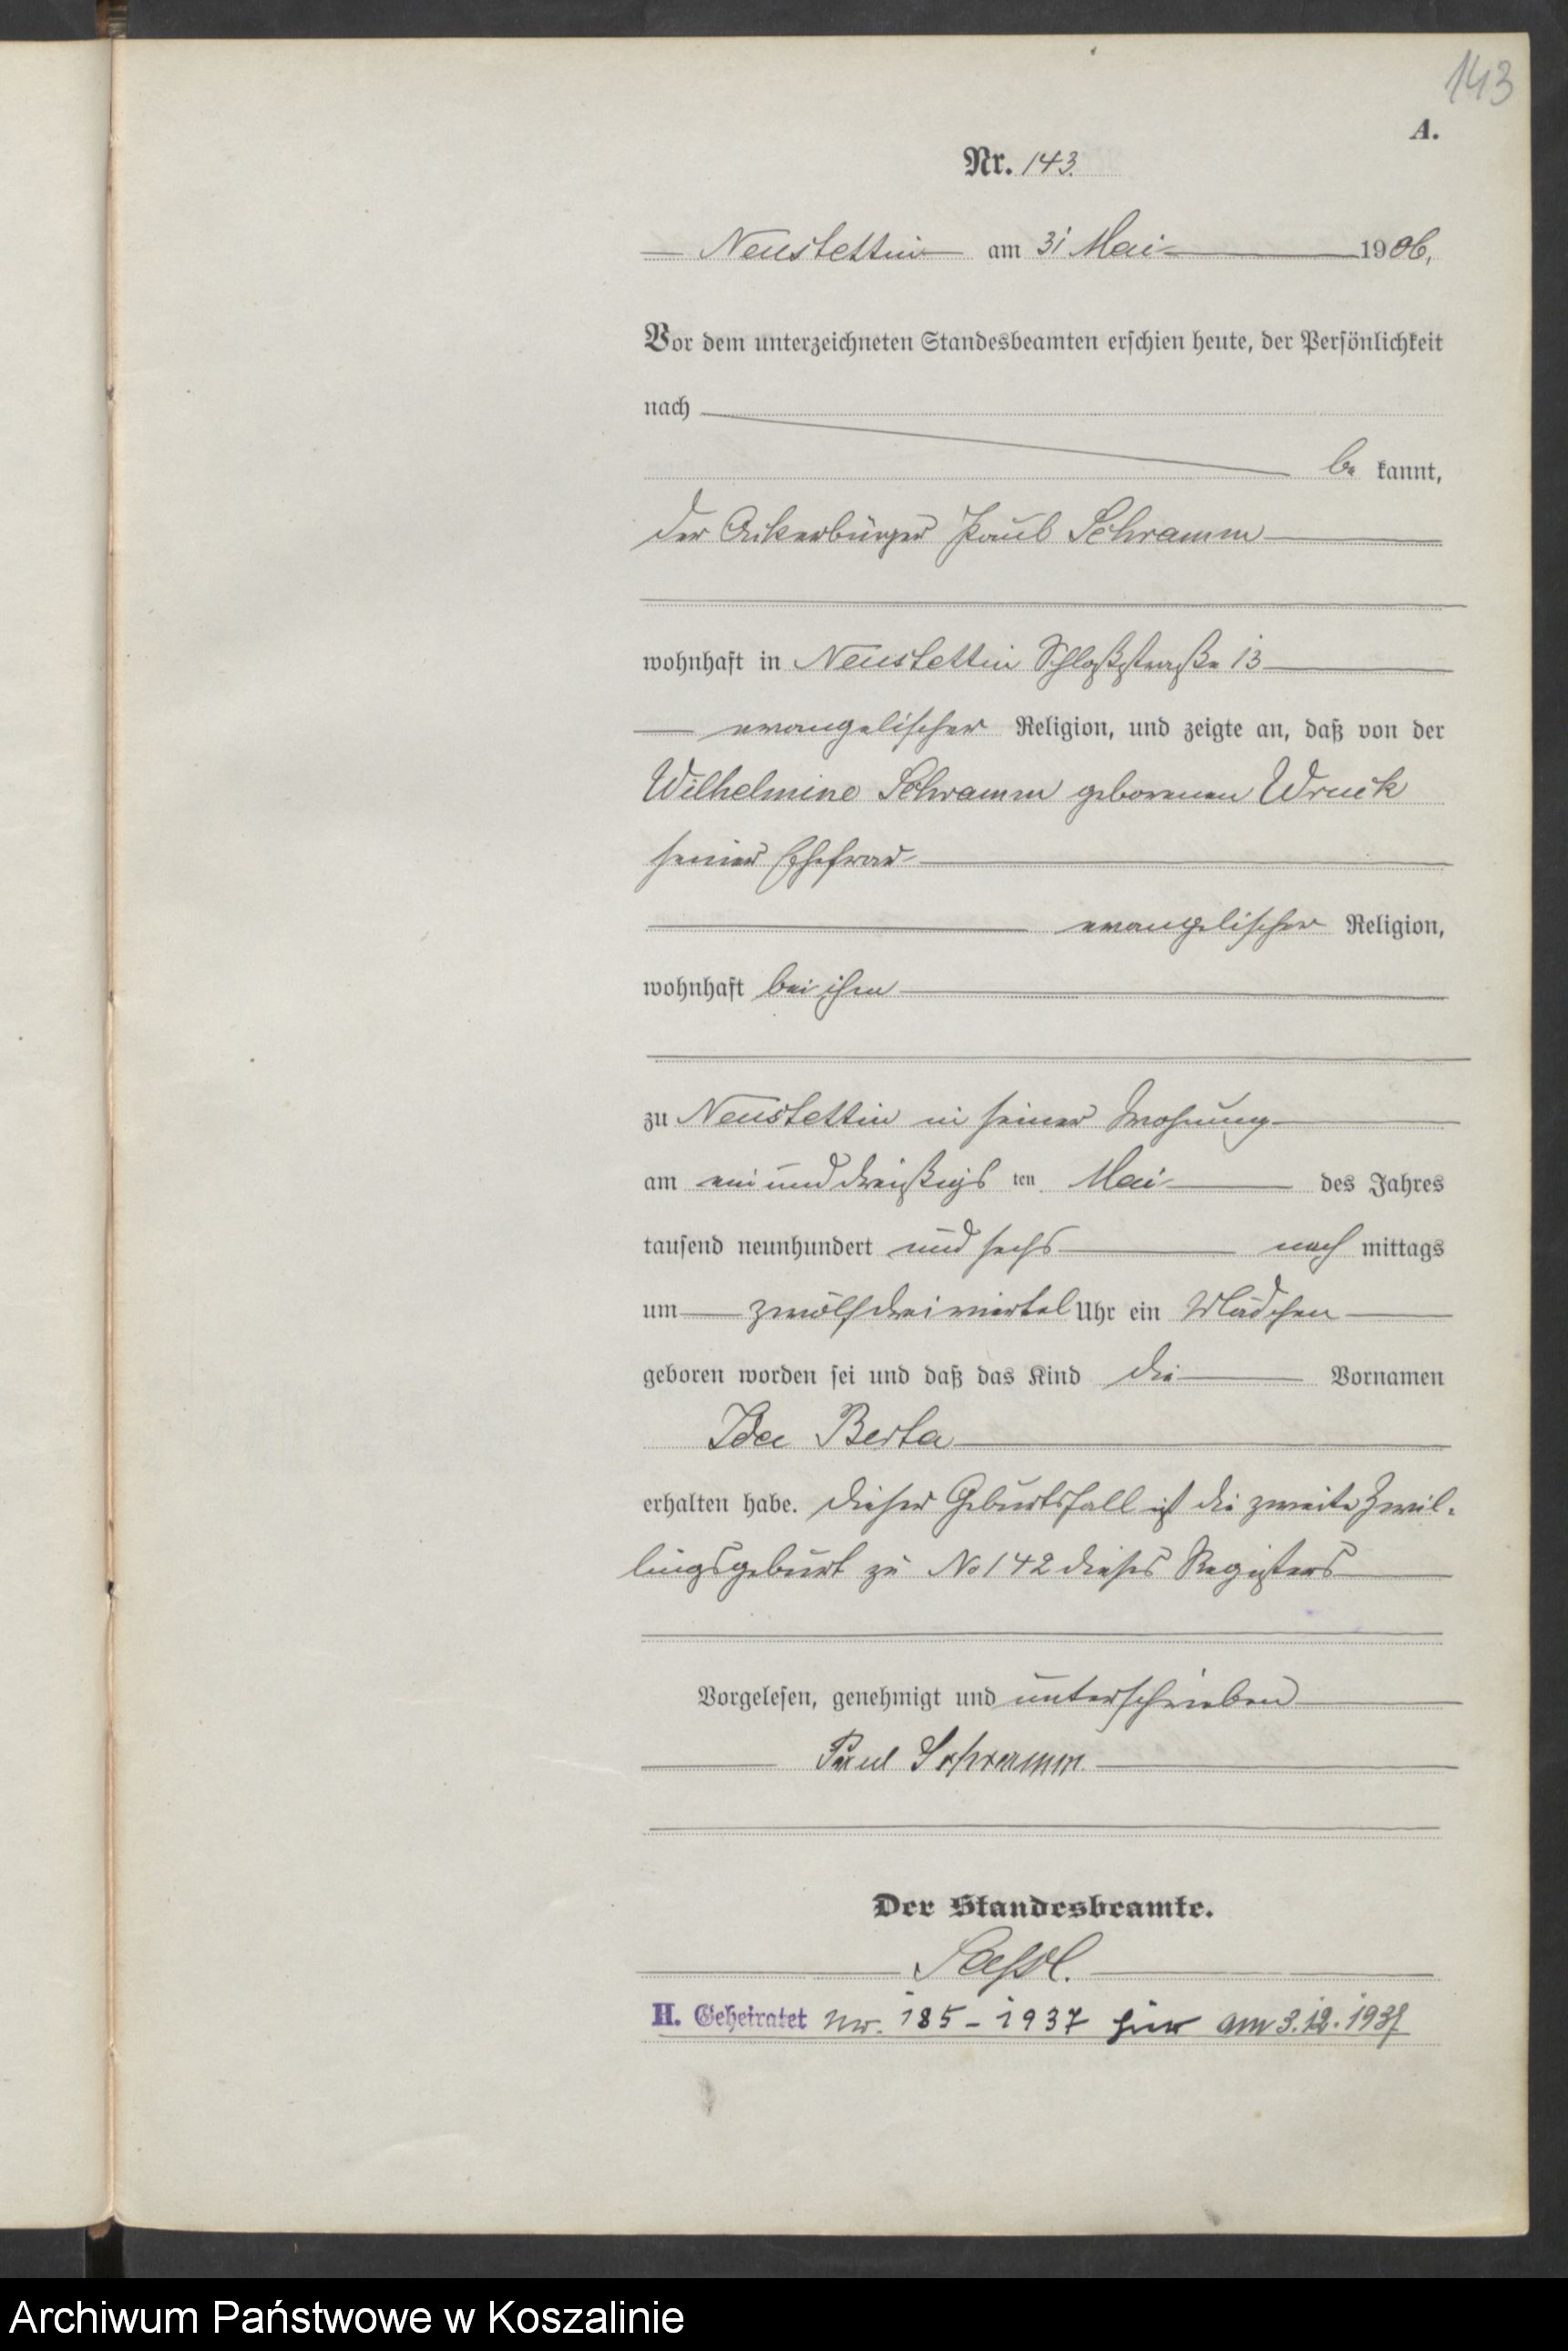 143
A.
Nr. 143.
Neustettin am 31 Mai 1906.
Vor dem unterzeichneten Standesbeamten erschien heute, der Persönlichkeit
nach
be kannt,
der Ackerbürger Paul Schramm
wohnhaft in Neustettin Schloßstraße 13
evangelischer Religion, und zeigte an, daß von der
Wilhelmine Schramm geborenen Wruck
seiner Ehefrau
evangelischer Religion,
wohnhaft bei ihm
zu Neustettin in seiner Wohnung
am ein und dreißigs ten Mai des Jahres
tausend neunhundert und sechs nach mittags
um zwölf dreiviertel Uhr ein Mädchen
geboren worden sei und daß das Kind die Vornamen
Ida Berta
erhalten habe. Dieser Geburtsfall ist die zweite Zwil-
lingsgeburt zu No 142 dieses Registers
Vorgelesen, genehmigt und unterschrieben
Paul Schramm
Der Standesbeamte.
II. Geheiratet Nr. 185-1937 hier am 3.12.1937
Archiwum Państwowe w Koszalinie